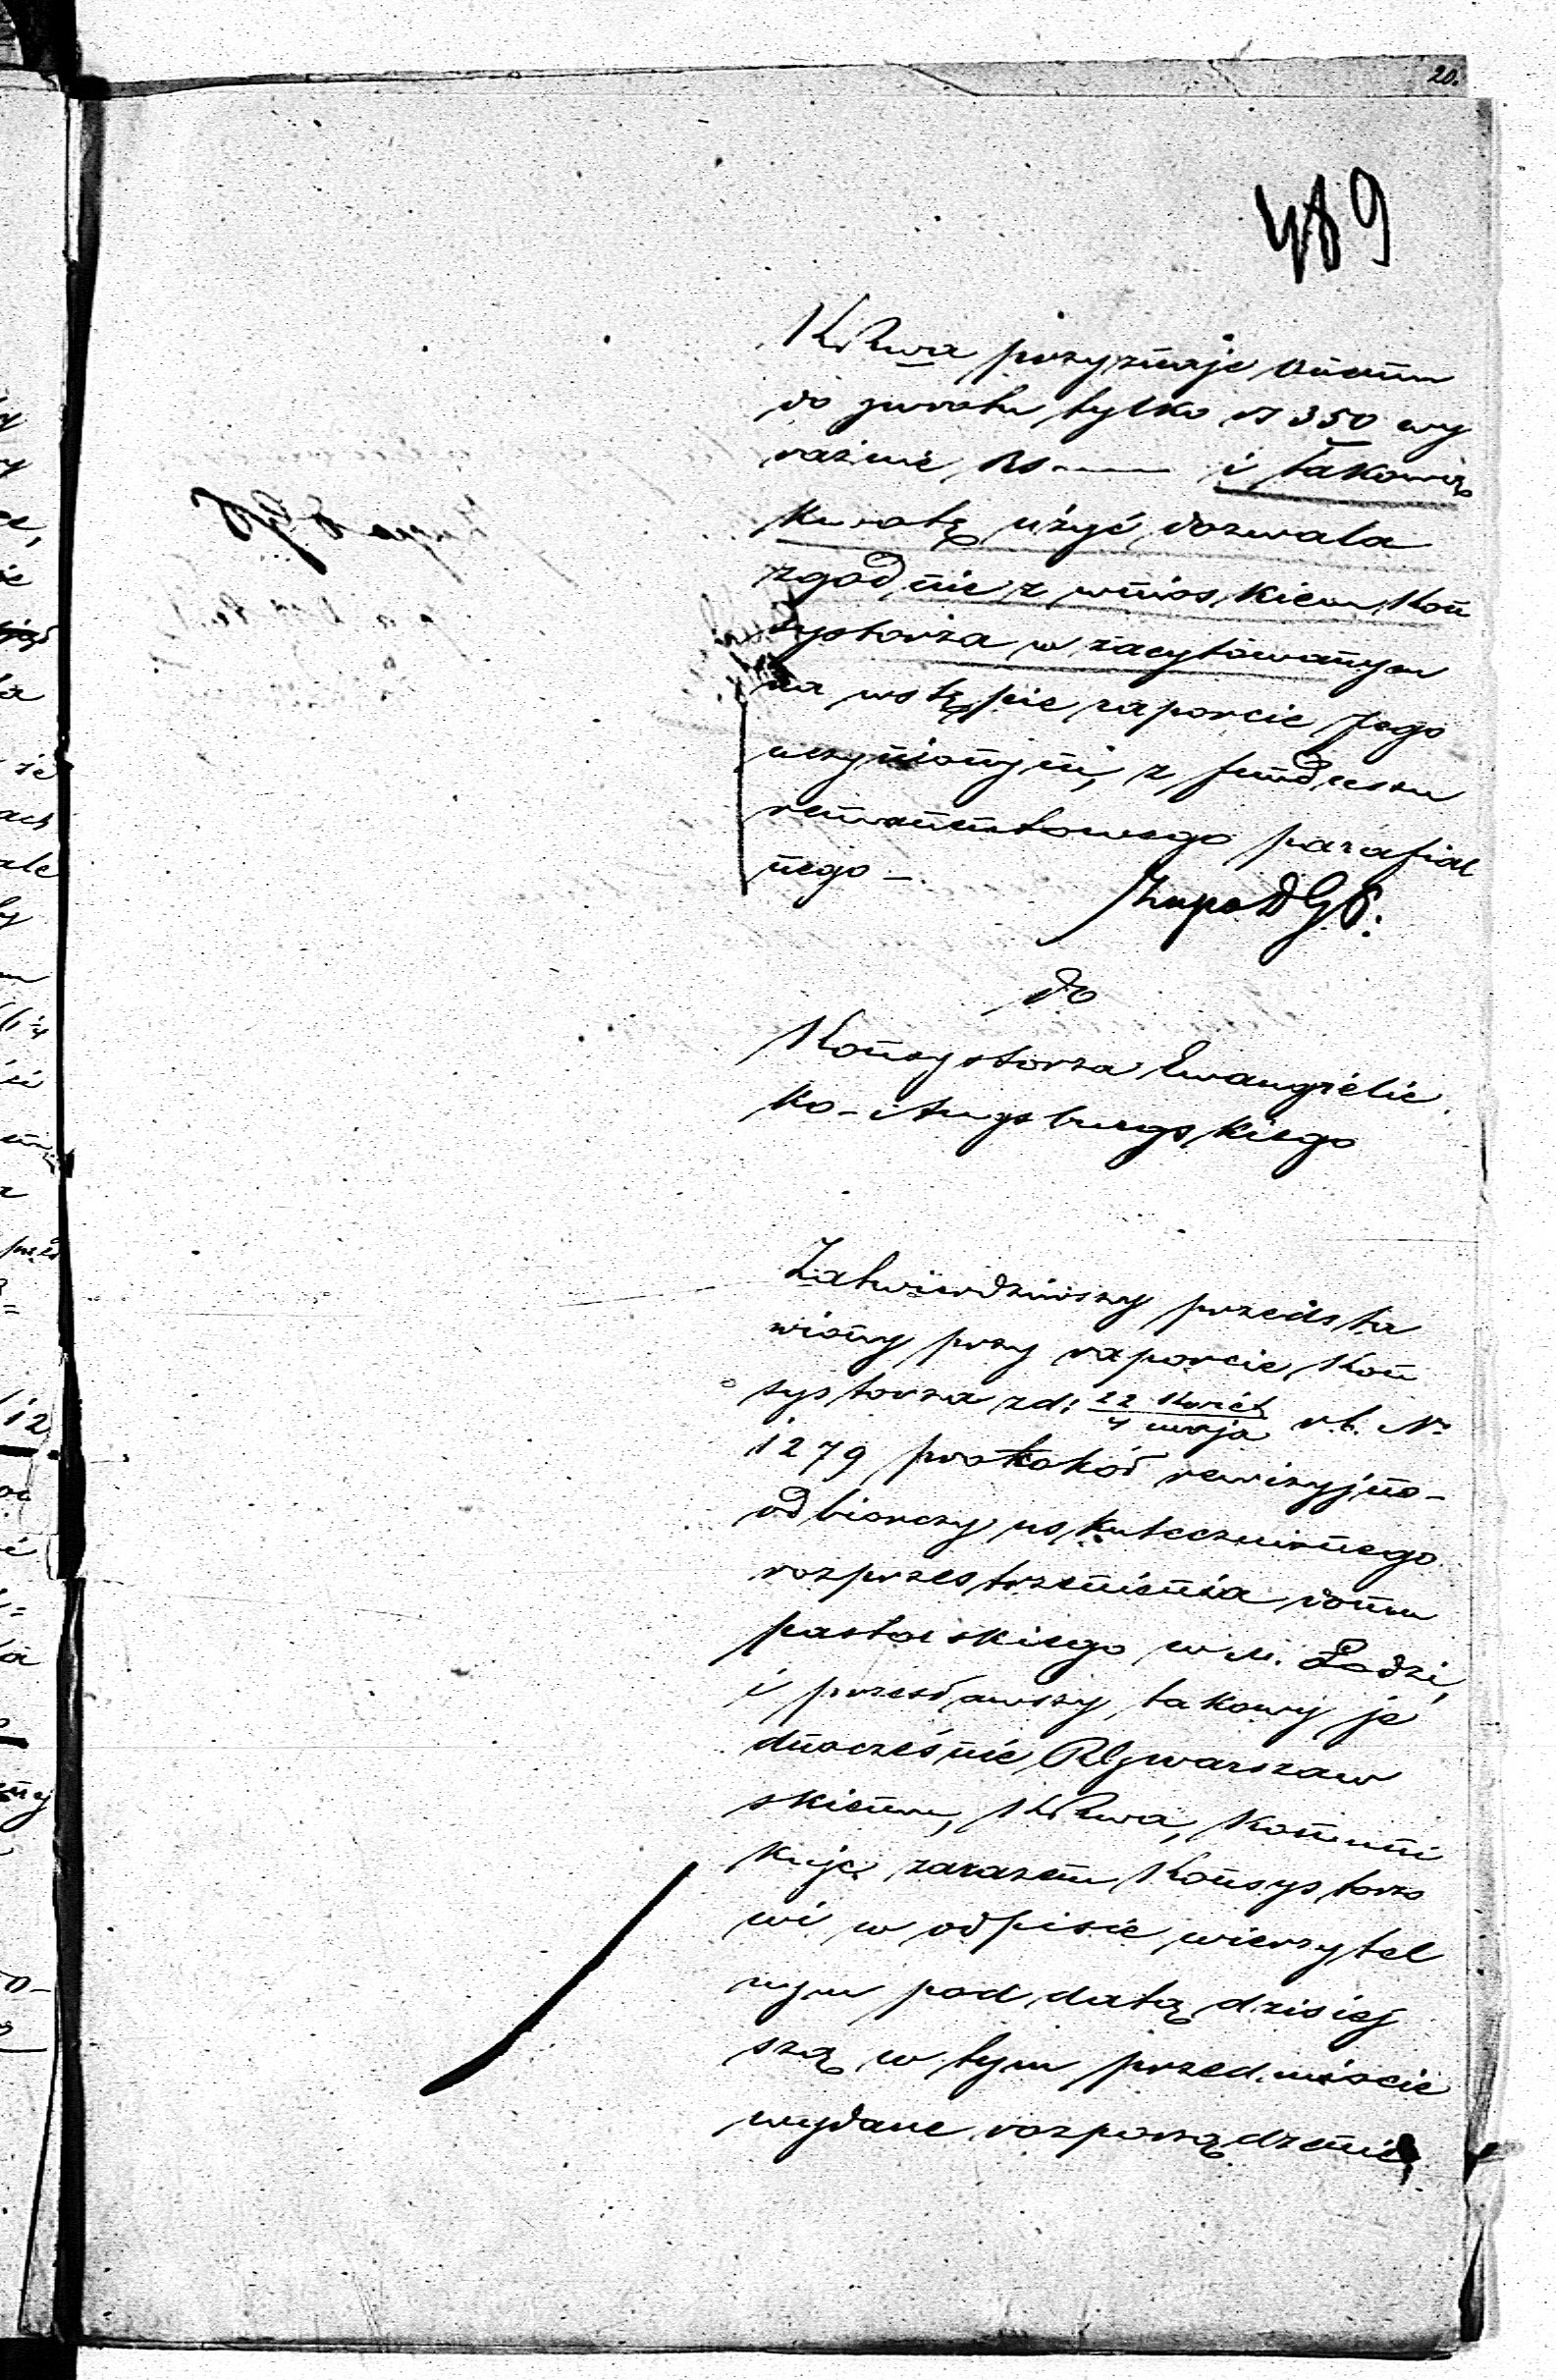 20.
489
KRwa przyznaje onemu
do zwrotu tylko rs 350 wy
raźnie Rs — i takową
kwotę użyć dozwala
zgodnie z wnioskiem Kon
systorza w zacytowanym
na wstępie raporcie Jego
uczynionym, z funduszu
remanentowego parafial
nego —
Zupa DGS:
do
Konsystorza Ewangielic
ko-Augsburgskiego
Zatwierdziwszy przedsta
wiony przy raporcie Kon
systorza zd: 22 Kwiet / 4 maja r.b. No
1279 protokół rewizyjno-
odbiorczy uskutecznionego
rozprzestrzenienia domu
pastorskiego w m. Łodzi,
i przesławszy takowy je
dnocześnie RGwarszaw
skiemu, KRwa, kommuni
kuje zarazem Konsystorzo
wi w odpisie wierzytel
nym pod datą dzisiej
szą w tym przedmiocie
wydane rozporządzenie,